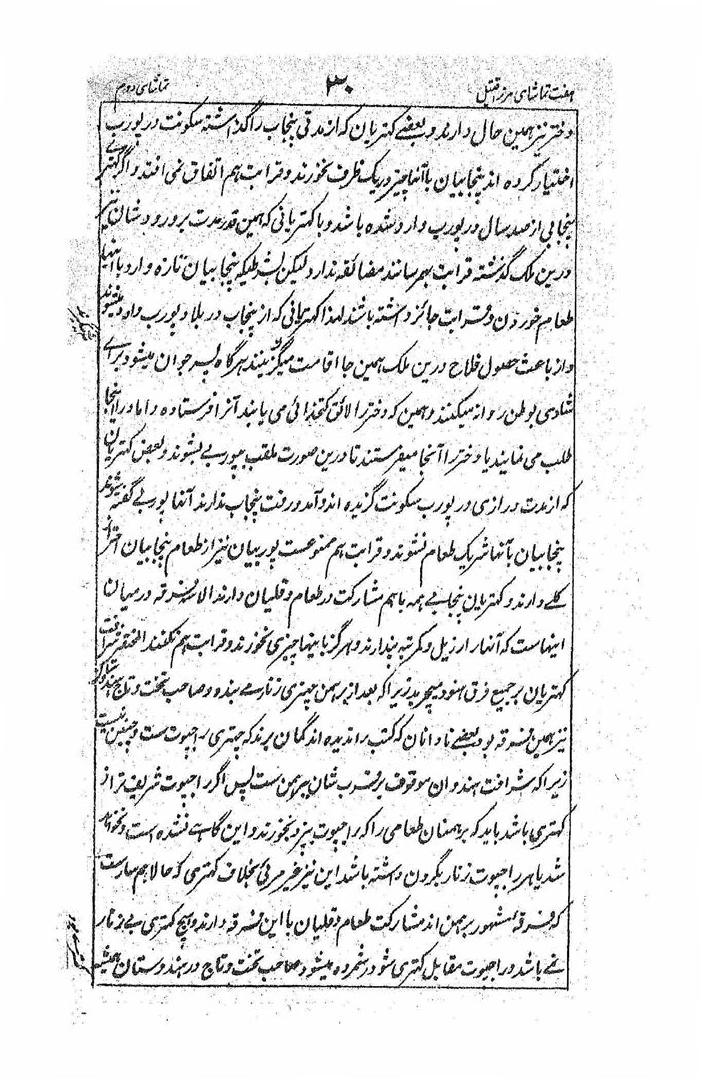 هفت تماشای مرزا قتیل ۳۰ تماشای دوم
دختر نیز همین حال دارند و بعضے کهتریان که از مدتی پنجاب را گذاشته سکونت در پورب
اختیار کرده اند پنجابیان با آنها چیز در یک ظرف نخورند و قرابت هم اتفاق نمی افتد و اگر کهتری
پنجابی از صد سال در پورب وارد شده باشد و با کهتریانی که همین قدر مدت بر ورود شان نیز
درین ملک گذشته قرابت بهم رسانند مضائقه ندارد لیکن بشرطیکه پنجابیان تازه وارد با اینها
طعام خوردن و قرابت جائز داشته باشند لهذا کهتریانی که از پنجاب در بلاد پورب وارد میشوند
و از باعث حصول فلاح درین ملک همین جا اقامت میگزینند هرگاه پسر جوان میشود برای
شادی بوطن روانه میکنند و همین که دختر لائق کتخدائی می یابند آنرا فرستاده داماد را اینجا
طلب می نمایند یا دختر را آنجا میفرستند تا درین صورت ملقب بپوربے نشوند و بعض کهتریان
که از مدت درازی در پورب سکونت گزیده اند و آمد و رفت پنجاب ندارند آنها پوربے گفته میشوند
پنجابیان با آنها شریک طعام نشوند و قرابت هم ممنوعست پوربیان نیز از طعام پنجابیان احتراز
کلے دارند و کهتریان پنجابے همه باهم مشارکت در طعام و قلیان دارند الا سه فرقه در میان
اینهاست که آنها را رزیل و کم رتبه پندارند و هرگز با اینها چیزی نخورند و قرابت هم نکنند المختصر شرافت
کهتریان بر جمیع فرق هنود میچربد زیرا که بعد از برهمن چهتری زنار مے بندد و صاحب تخت و تاج هندوستان
نیز همین فرقه بود بعضے نادانان که کتب را ندیده اند گمان برند که چهتری راجپوت ست و چنین نیست
زیرا که شرافت هندوان موقوف بر قرب شان ببرهمن ست پس اگر راجپوت شریف تر از
کهتری باشد باید که برهمنان طعامی را که راجپوت بپزد بخورند و این گاهے نشده است و نخواهد
شد یا هر راجپوت زنار بگردن داشته باشد این نیز غیر مرئی بخلاف کهتری که حالا هم سارست
که فرقه مشهور برهمن اند مشارکت طعام و قلیان با این فرقه دارند و هیچ کهتری بے زنار
نمے باشد و راجپوت مقابل کهتری شودر شمرده میشود صاحب تخت و تاج در هندوستان همیشه